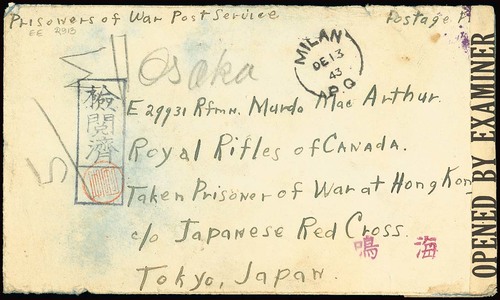 Prisoners of War Post Service
Postage
EE
MILAN
DE 13
43
P.Q
Osaka
E 29931 Rfmn. Murdo Mac Arthur.
Royal Rifles of CANADA.
Taken Prisoner of War at Hong Kon
c/o Japanese Red Cross.
Tokyo, Japan.
檢閲濟
鳴海
OPENED BY EXAMINER